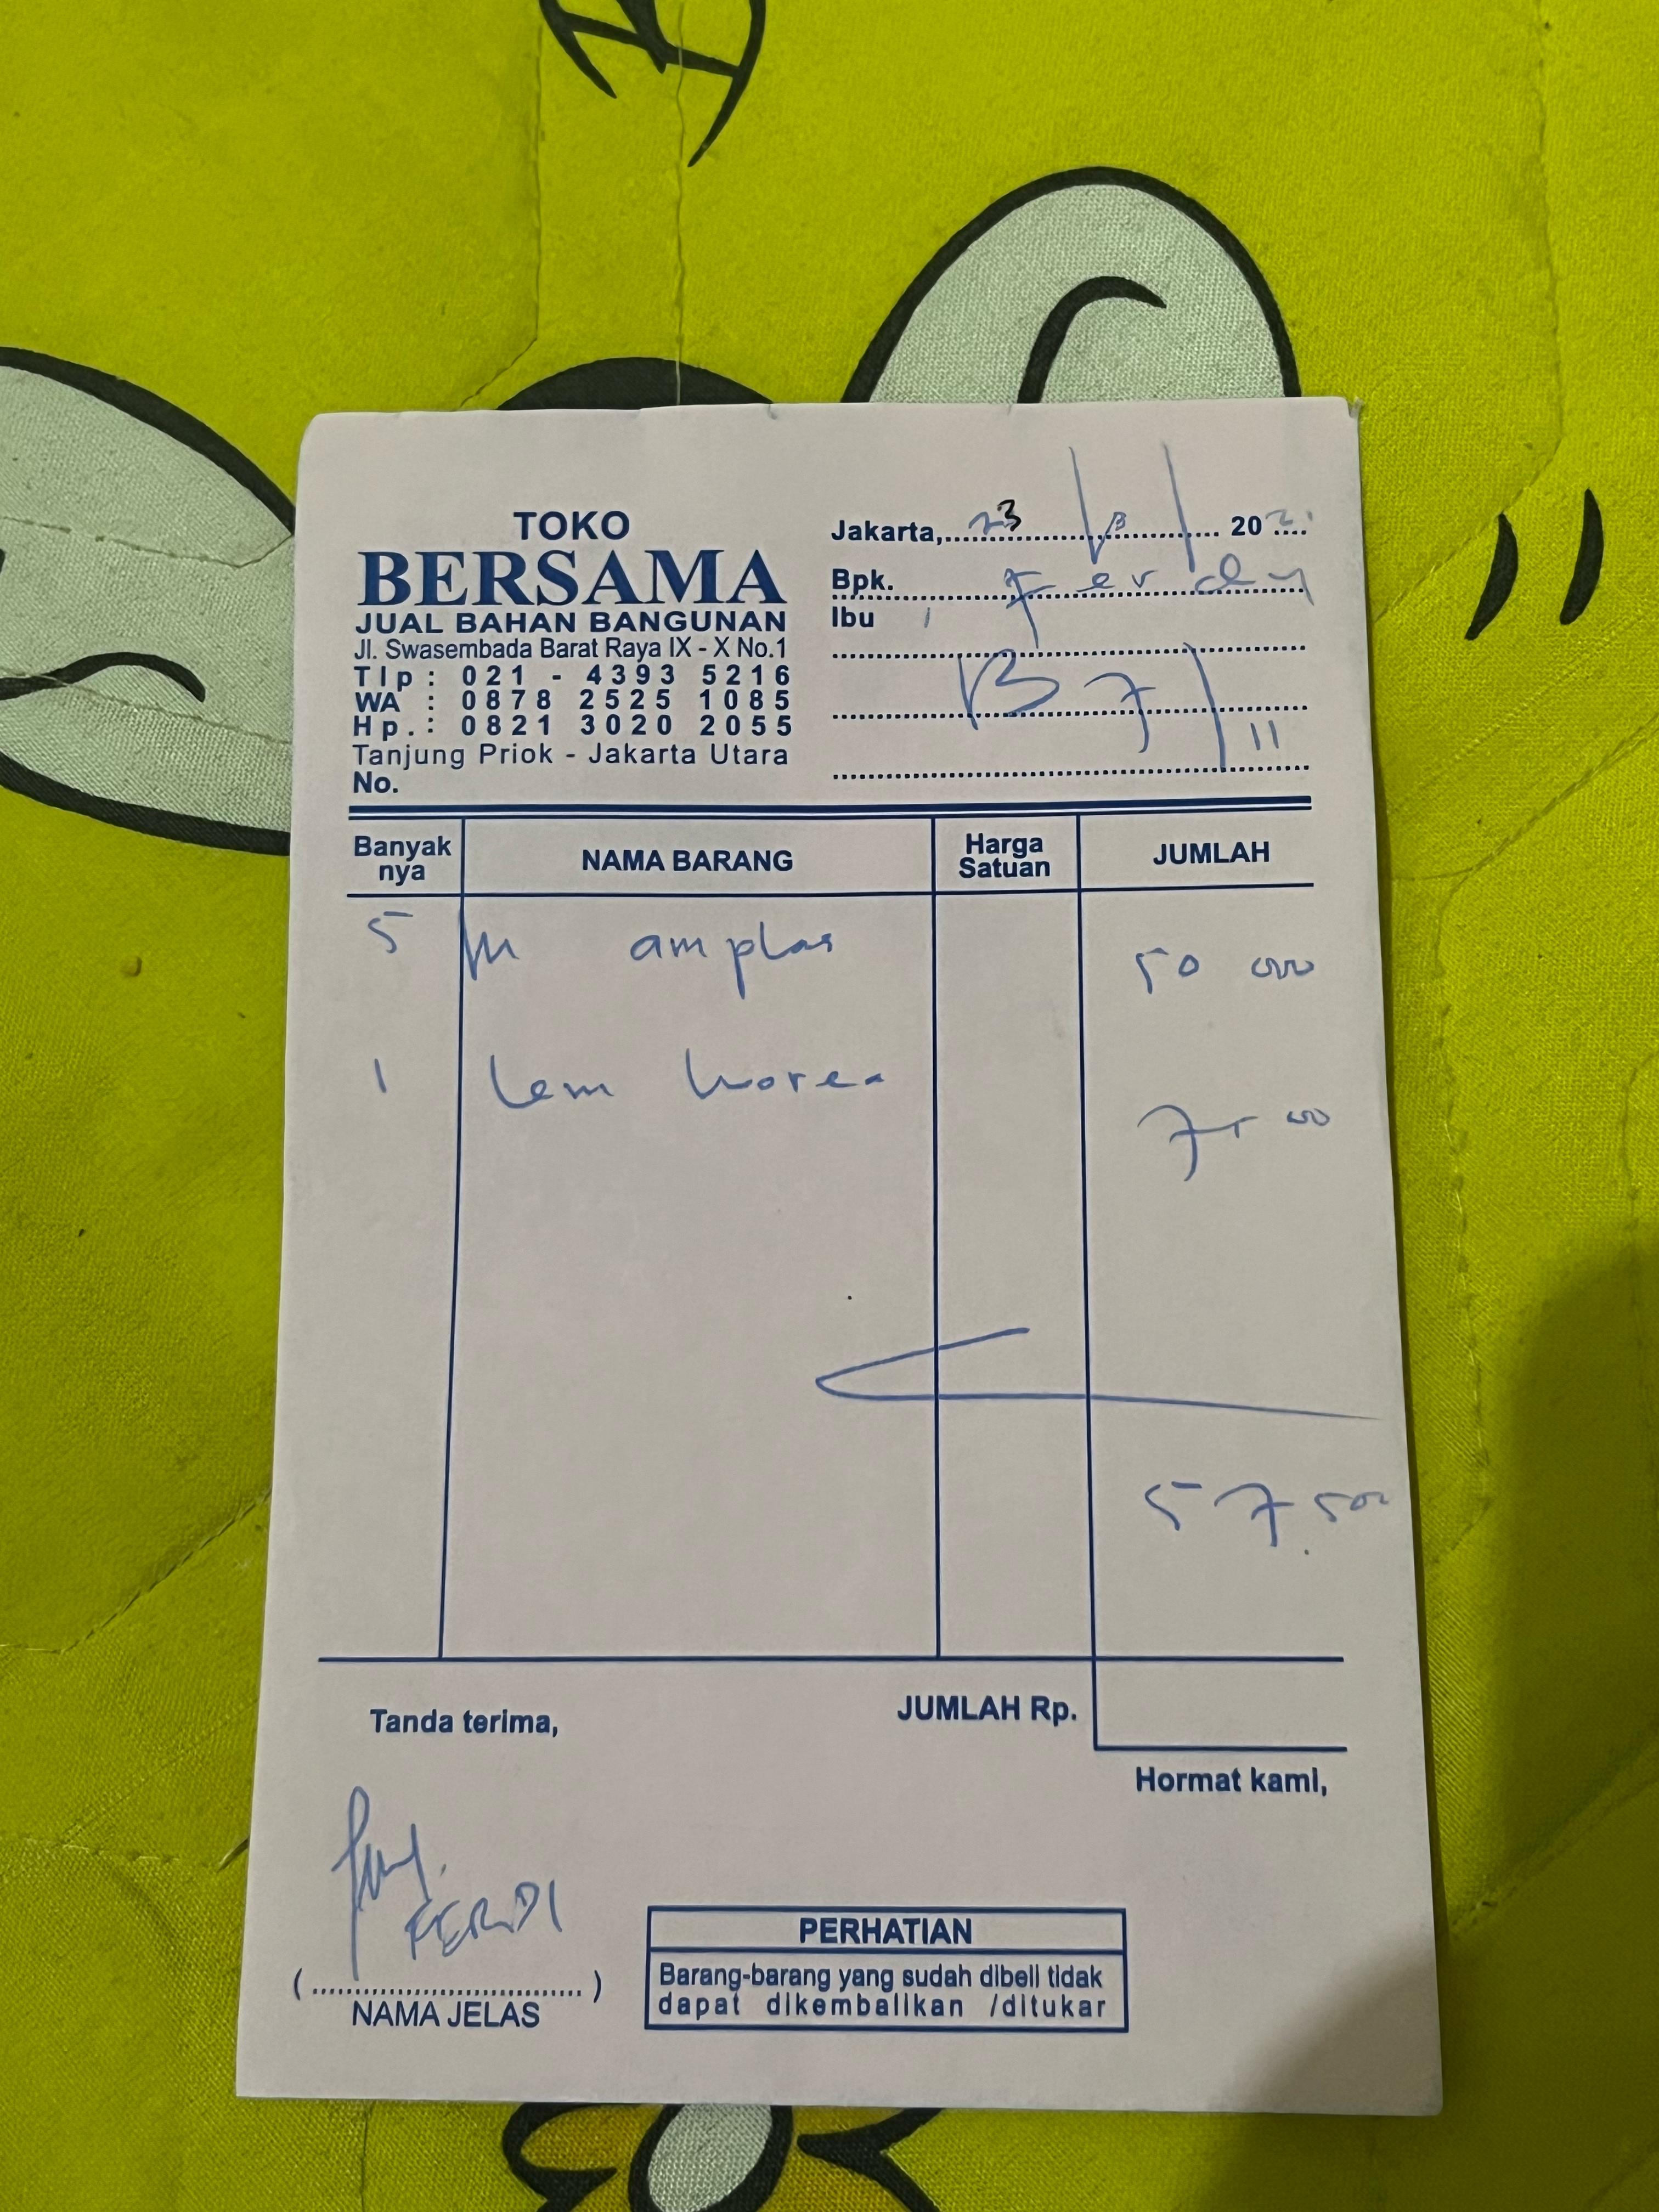 TOKO
BERSAMA
JUAL BAHAN BANGUNAN
Jl. Swasembada Barat Raya IX - X No.1
Tlp : 021 - 4393 5216
WA : 0878 2525 1085
Hp. : 0821 3020 2055
Tanjung Priok - Jakarta Utara
No.
Jakarta, 23 / / 20
Bpk. Ferdy
Ibu
B7/11
Banyak nya NAMA BARANG Harga Satuan JUMLAH
5 M amplas 50 000
1 lem korea 7500
57.500
Tanda terima,
JUMLAH Rp.
Hormat kami,
FERDI
(..............................)
NAMA JELAS
PERHATIAN
Barang-barang yang sudah dibeli tidak
dapat dikembalikan /ditukar